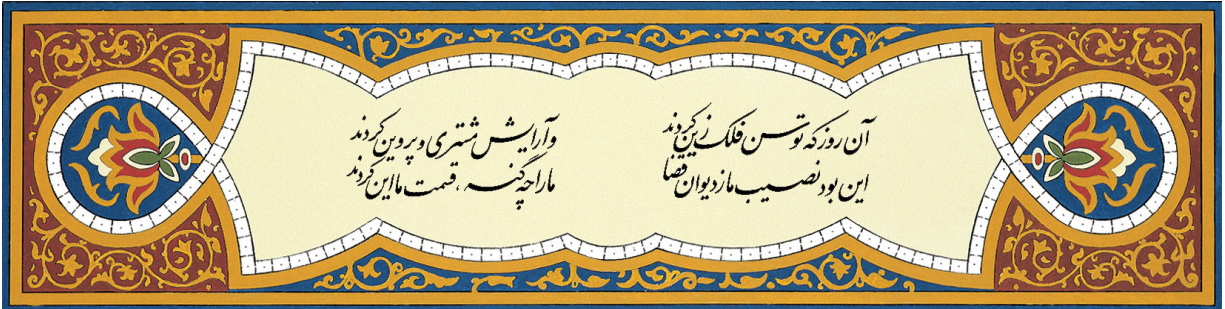 آن روز که توسن فلک زین کردند
وآرایش مشتری و پروین کردند
این بود نصیب ما ز دیوان قضا
ما را چه گنه، قسمت ما این کردند